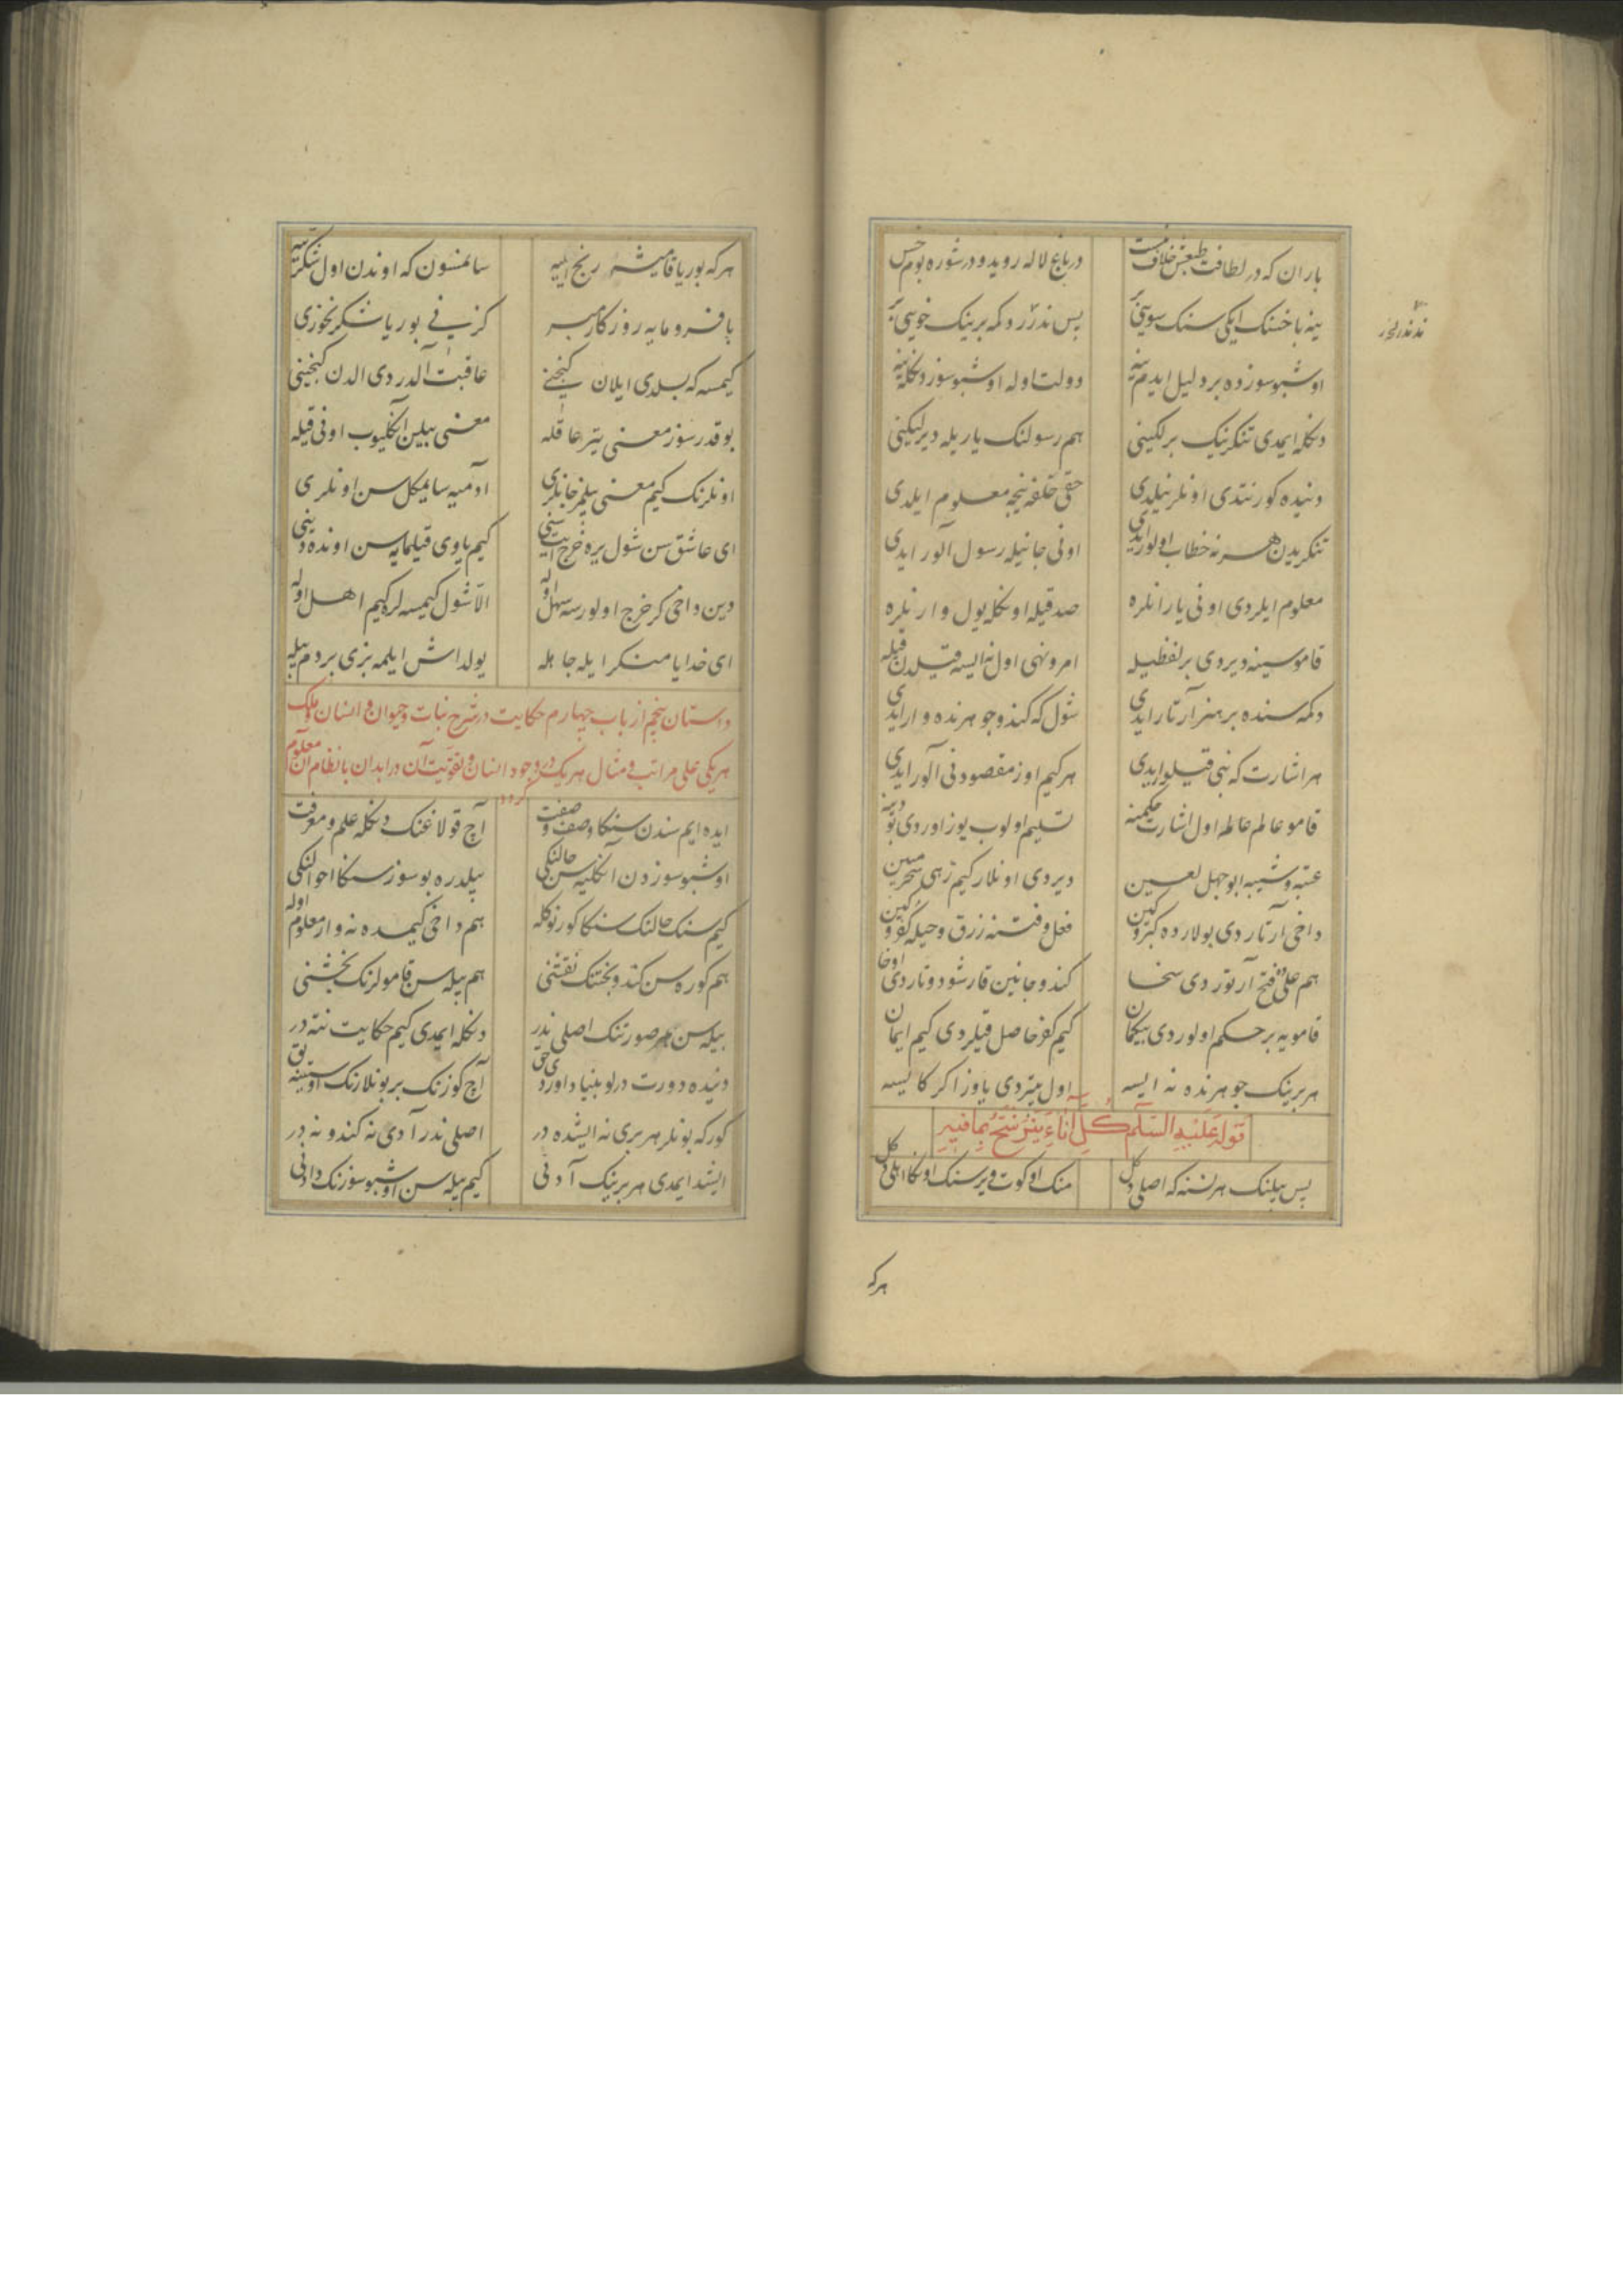 باران که در لطافت طبعش خلاف نیست در باغ لاله روید و در شوره بوم خس
ینه باخسنک ایکی سنک سویی بر پس ندر در دکمه برینک خویی بر
اوشبو سوزده بر دلیل ایدم ینه دولت اوله اوشبو سوز دکلیه‌نه
دکله ایمدی تنکرینک برلکینی هم رسولنک یاریله دیرلیکینی
دنیده کورنتدی اونلر نیلدی حقی خلقه نیجه معلوم ایلدی
تنکریدن هر نه خطاب اولور ایدی اونی جانیله رسول آلور ایدی
معلوم ایلردی اونی یارانلره صدقیله اونکله یول وارنلره
قاموسینه دیردی بر لفظیله امر و نهی اول نه ایسه قیلدن قیله
دکمه سنده بر هنر آرتار ایدی شول که کندو جوهرنده وار ایدی
هر اشارت که نبی قیلور ایدی هر کیم اوز مقصودنی آلور ایدی
قامو عالم عالمه اول اشارت حکمینه تسلیم اولوب یوز اوردی بو دینه
عتبه و شیبه ابو جهل لعین دیردی اونلار کیم زهی سحر مبین
داخی آرتاردی بولارده کبر و کین فعل و فتنه زرق و حیله کفر و کین
هم علی فتح آرتوردی سخا کندو جانین قارشو دوتاردی اوخا
قامویه بر حکم اولوردی بیکمان کیم کفر حاصل قیلردی کیم ایمان
هر برینک جوهرنده نه ایسه اول بیتردی یاوز اکر کا یسه
قوله علیه السلام كل اناء يترشح بما فيه
پس بیلنک هر نسنه که اصلی دکل منک اوکوت ویرسنک اونکا اهلی دکل
هر که
هر که بوریا قامیشه رنج ایلیه سانمسون که اوندن اول شکر ییه
با فرومایه روزکار مبر کز نی بوریا شکر نخوری
کیمسه که بسلدی ایلان کنجنی عاقبت آلدردی الدن کنجینی
بو قدر سوز معنی یتر عاقله معنی بیلین آنکلیوب اونی قیله
اونلرنک کیم معنی بیلمز جانلری آدمیه سایمکل سن اونلری
ای عاشق سن شول یره خرج ایت سنی کیم یاوی قیلمایه سن اونده دینی
دین داخی کر خرج اولورسه سهل اوله الا شول کیمسه لره کیم اهل اوله
ای خدایا منکر ایله جاهله یولداش ایلمه بزی بر دم بیله
داستان پنجم از باب چهارم حکایت در شرح نبات و حیوان و انسان و ملک
هر یکی علی مراتب و مثال هر یک در وجود انسان و تقویت آن در ابدان با نظام آن معلوم
کردد
ایده ایم سندن سنکا وصف و صفت آچ قولاغنک دکله علم و معرفت
اوشبو سوزدن آنکلیه سن حالنکی بیلدره بو سوز سنکا احوالنکی
کیم سنک حالنک سنکا کورنو کله هم داخی کیمده نه وار معلوم اوله
هم کوره سن کندو بختنک نقشنی هم بیله سن قامولرنک بخشنی
بیله سن هر صورتنک اصلی ندر دکله ایمدی کیم حکایت نته در
دنیده دورت درلو بنیاد اوردی حق آچ کوزنک بر بونلارنک اوستینه بق
کور که بونلر هر بری نه ایشده در اصلی ندر آدی نه کندو نه در
ایشد ایمدی هر برینک آدنی کیم بیله سن اوشبو سوزنک دادنی